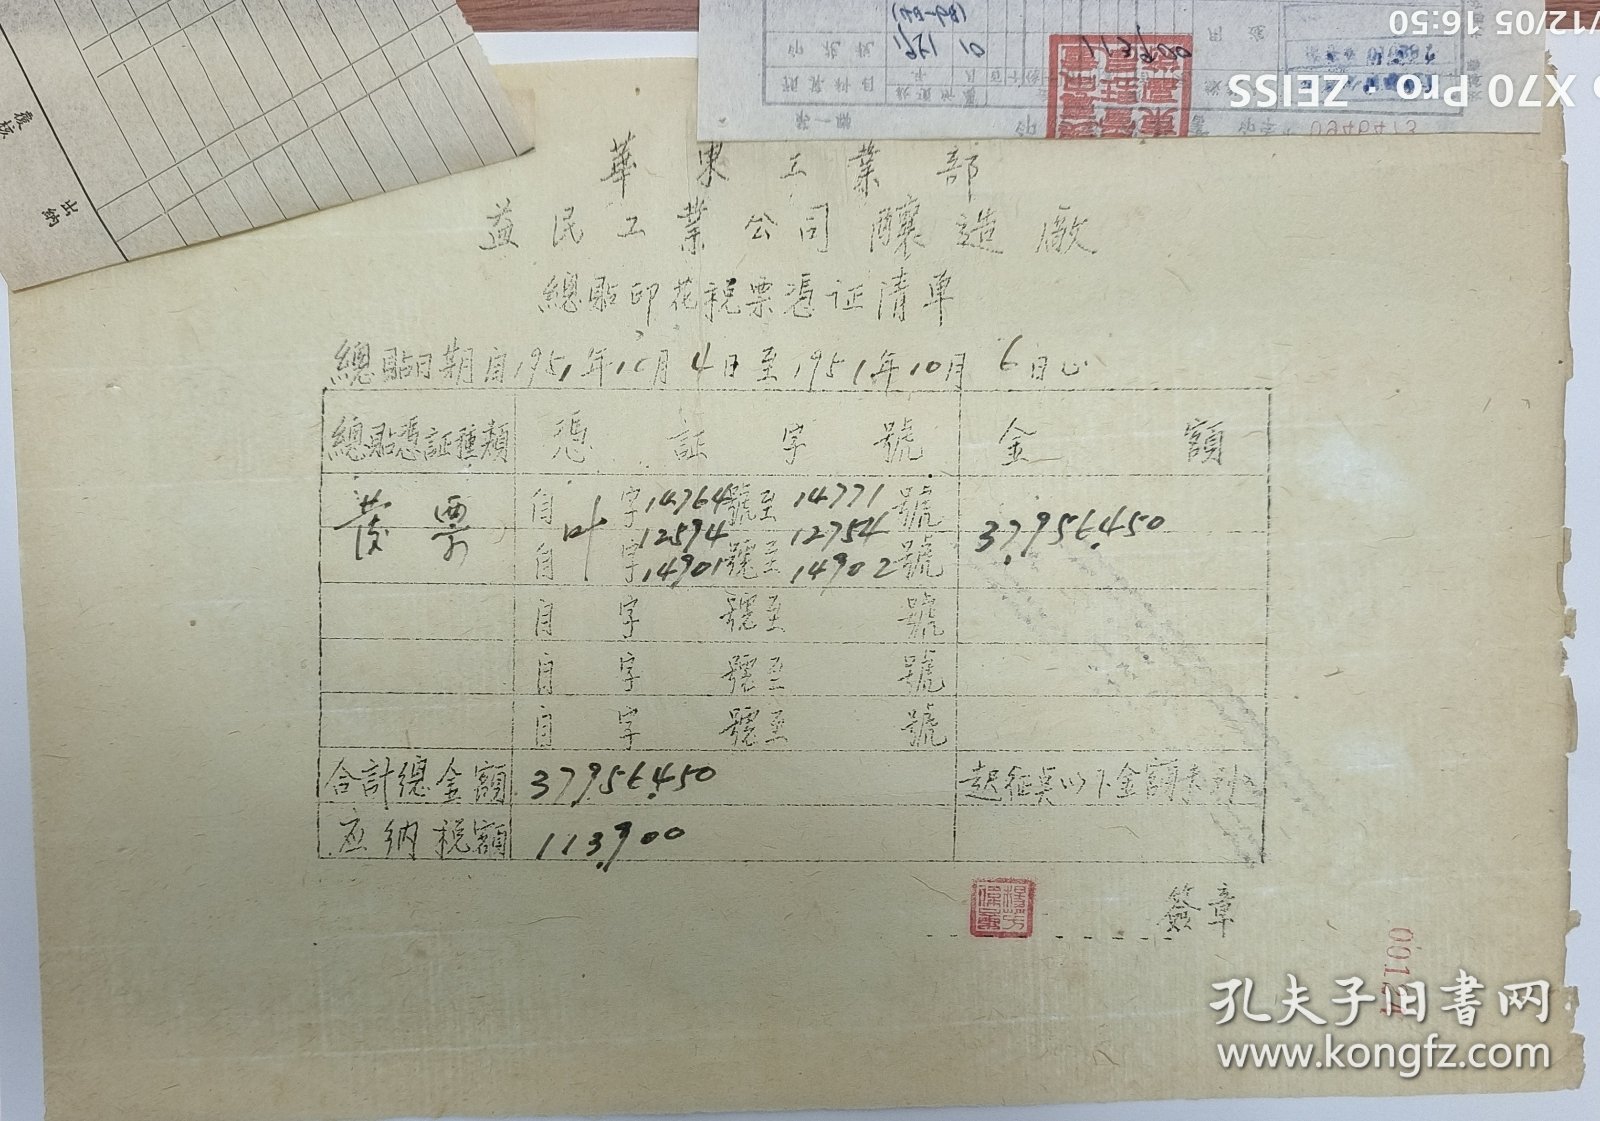 覆核
出納
/12/05 16:50
X70 Pro ZEISS
0946473
華東工業部
益民工業公司釀造廠
總貼印花税票憑证清单
總貼日期自1951年10月4日至1951年10月6日止
總貼憑証種類 憑証字號 金額
發票 自叶字14764號至14771號 37,956,450
12594 12754
自字14901號至14902號
自字號至號
自字號至號
自字號至號
合計總金額 37,956,450 起征点以下金額未列入
应纳税額 113,900
簽章
00121
孔夫子旧书网
www.kongfz.com